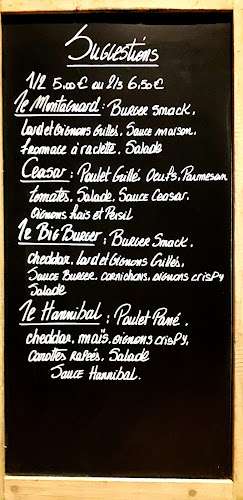 Suggestions
1/2 5,00€ ou 2/3 6,50€
le Montagnard: Burger Smack,
lard et Oignons Grillés, Sauce maison,
fromage à raclette, Salade
Ceasar: Poulet Grillé Oeufs, Parmesan
tomates, Salade, Sauce Ceasar,
Oignons frais et Persil
le Big Burger: Burger Smack,
cheddar, lard et Oignons Grillés,
Sauce Burger, cornichons, oignons crispy
Salade
le Hannibal: Poulet Pané,
cheddar, maïs, oignons crispy,
Carottes rapées, Salade
Sauce Hannibal.